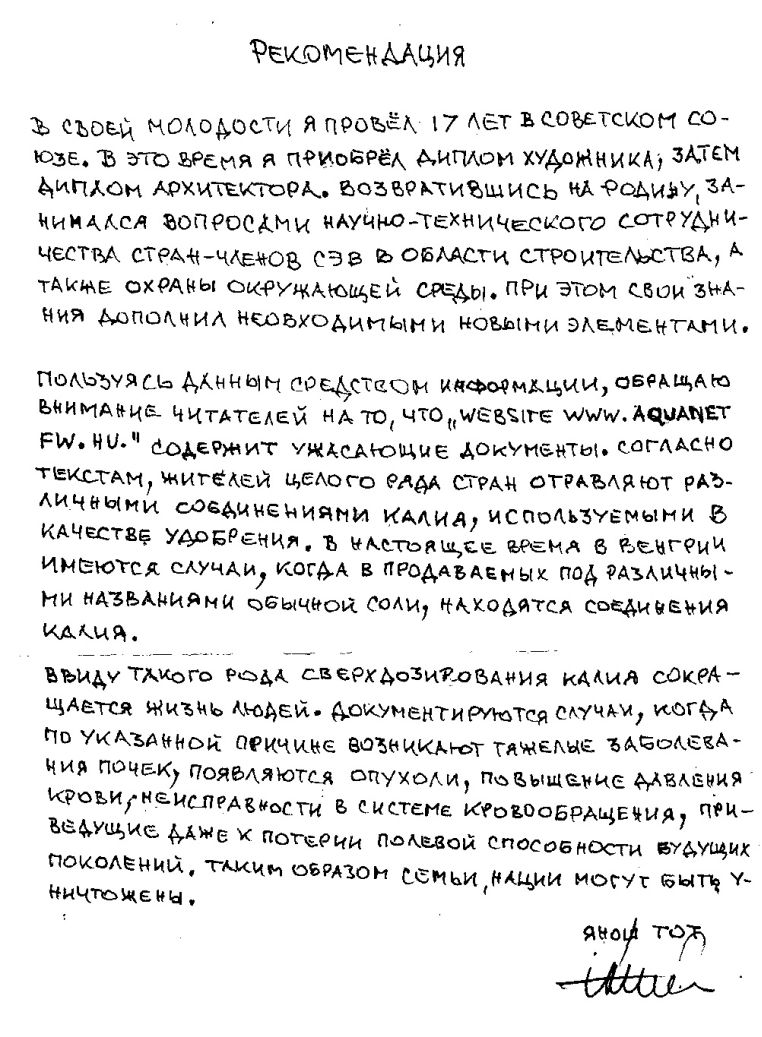 РЕКОМЕНДАЦИЯ
В СВОЕЙ МОЛОДОСТИ Я ПРОВЁЛ 17 ЛЕТ В СОВЕТСКОМ СО-
ЮЗЕ. В ЭТО ВРЕМЯ Я ПРИОБРЁЛ ДИПЛОМ ХУДОЖНИКА, ЗАТЕМ
ДИПЛОМ АРХИТЕКТОРА. ВОЗВРАТИВШИСЬ НА РОДИНУ, ЗА-
НИМАЛСЯ ВОПРОСАМИ НАУЧНО-ТЕХНИЧЕСКОГО СОТРУДНИ-
ЧЕСТВА СТРАН-ЧЛЕНОВ СЭВ В ОБЛАСТИ СТРОИТЕЛЬСТВА, А
ТАКЖЕ ОХРАНЫ ОКРУЖАЮЩЕЙ СРЕДЫ. ПРИ ЭТОМ СВОИ ЗНА-
НИЯ ДОПОЛНИЛ НЕОБХОДИМЫМИ НОВЫМИ ЭЛЕМЕНТАМИ.
ПОЛЬЗУЯСЬ ДАННЫМ СРЕДСТВОМ ИНФОРМАЦИИ, ОБРАЩАЮ
ВНИМАНИЕ ЧИТАТЕЛЕЙ НА ТО, ЧТО „WEBSITE WWW.AQUANET
FW.HU.” СОДЕРЖИТ УЖАСАЮЩИЕ ДОКУМЕНТЫ. СОГЛАСНО
ТЕКСТАМ, ЖИТЕЛЕЙ ЦЕЛОГО РЯДА СТРАН ОТРАВЛЯЮТ РАЗ-
ЛИЧНЫМИ СОЕДИНЕНИЯМИ КАЛИЯ, ИСПОЛЬЗУЕМЫМИ В
КАЧЕСТВЕ УДОБРЕНИЯ. В НАСТОЯЩЕЕ ВРЕМЯ В ВЕНГРИИ
ИМЕЮТСЯ СЛУЧАИ, КОГДА В ПРОДАВАЕМЫХ ПОД РАЗЛИЧНЫ-
МИ НАЗВАНИЯМИ ОБЫЧНОЙ СОЛИ, НАХОДЯТСЯ СОЕДИНЕНИЯ
КАЛИЯ.
ВВИДУ ТАКОГО РОДА СВЕРХДОЗИРОВАНИЯ КАЛИЯ СОКРА-
ЩАЕТСЯ ЖИЗНЬ ЛЮДЕЙ. ДОКУМЕНТИРУЮТСЯ СЛУЧАИ, КОГДА
ПО УКАЗАННОЙ ПРИЧИНЕ ВОЗНИКАЮТ ТЯЖЕЛЫЕ ЗАБОЛЕВА-
НИЯ ПОЧЕК, ПОЯВЛЯЮТСЯ ОПУХОЛИ, ПОВЫШЕНИЕ ДАВЛЕНИЯ
КРОВИ, НЕИСПРАВНОСТИ В СИСТЕМЕ КРОВООБРАЩЕНИЯ, ПРИ-
ВЕДУЩИЕ ДАЖЕ К ПОТЕРИИ ПОЛЕВОЙ СПОСОБНОСТИ БУДУЩИХ
ПОКОЛЕНИЙ. ТАКИМ ОБРАЗОМ СЕМЬИ, НАЦИИ МОГУТ БЫТЬ У-
НИЧТОЖЕНЫ.
ЯНОШ ТОТ